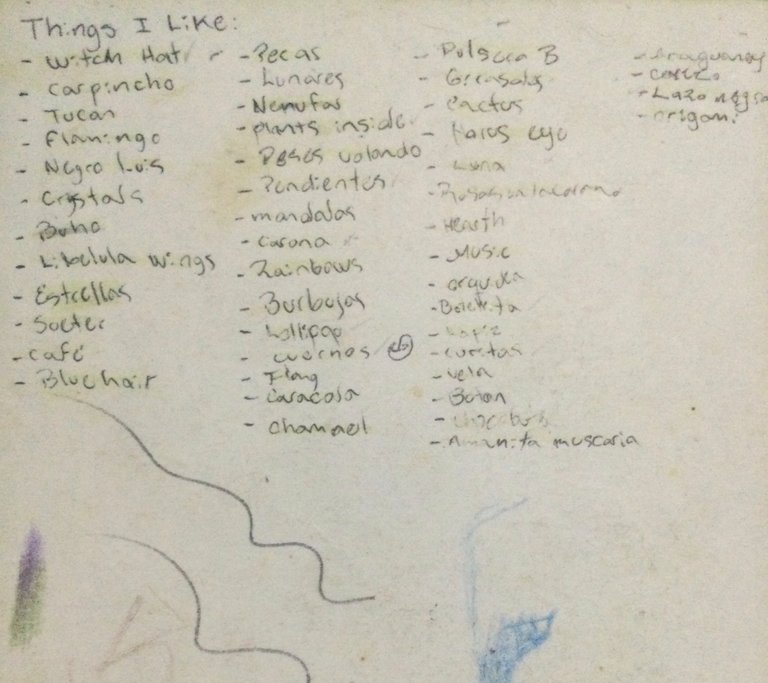 Things I Like:
- Witch Hat
- Carpincho
- Tucan
- Flamingo
- Negro Luis
- Crystals
- Buho
- Libelula wings
- Estrellas
- Sueter
- café
- Blue hair
- Pecas
- Lunares
- Nenufar
- plants inside
- Peses volando
- Pendientes
- mandalas
- Corona
- Rainbows
- Burbujas
- Lollipop
- cuernos
- Flang
- Caracola
- Chamael
- Pulsera B
- Girasoles
- Cactus
- Horos eye
- Luna
- Rosas en la corona
- Hearth
- Music
- orquidea
- Boinita
- Lapiz
- curitas
- vela
- Boton
- Amanita muscaria
- Araguaney
- cerezo
- Lazo negro
- origami